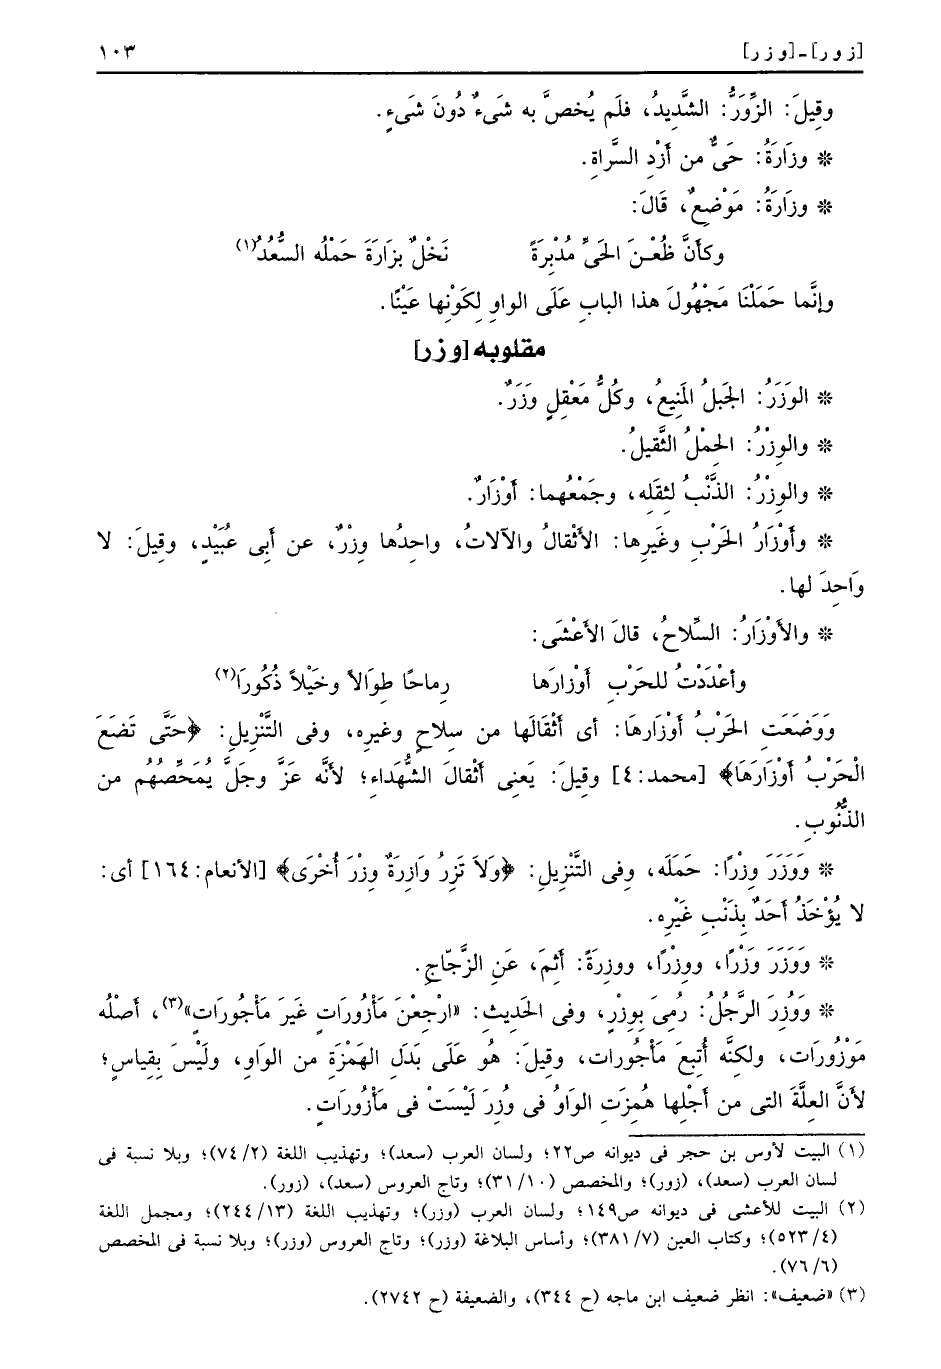 [زور]ـ[وزر] ١٠٣
وقِيلَ: الزِّوَرُّ: الشَّدِيدُ، فلَم يُخصَّ به شَىءٌ دُونَ شَىءٍ.
* وزَارَةُ: حَىٌّ من أَزْدِ السَّراةِ.
* وزَارَةُ: مَوْضِعٌ، قَالَ:
وكأنَّ ظُعْنَ الحَىِّ مُدْبِرَةً نَخْلٌ بزَارَةَ حَمْلُه السُّعُدُ(١)
وإنَّما حَمَلْنَا مَجْهُولَ هذا البابِ عَلَى الواوِ لِكَوْنِها عَيْنًا.
مقلوبه [وزر]
* الوَزَرُ: الجَبلُ المَنِيعُ، وكُلُّ مَعْقِلٍ وَزَرٌ.
* والوِزْرُ: الحِمْلُ الثَّقيلُ.
* والوِزْرُ: الذَّنْبُ لثِقَلِه، وجَمْعُهما: أوْزَارٌ.
* وأَوْزَارُ الحَرْبِ وغَيرِها: الأَثْقالُ والآلاتُ، واحِدُها وِزْرٌ، عن أَبِى عُبَيْدٍ، وقِيلَ: لا
وَاحِدَ لها.
* والأوْزَارُ: السِّلاحُ، قالَ الأَعْشَى:
وأعْدَدْتُ للحَرْبِ أوْزارَها رِماحًا طِوَالاً وخَيْلاً ذُكُورَا(٢)
وَوَضَعَتِ الحَرْبُ أَوْزَارهَا: أى أثْقَالَها من سِلاحٍ وغيرِه، وفى التَّنْزِيلِ: ﴿حَتَّى تَضَعَ
الْحَرْبُ أَوْزَارَهَا﴾ [محمد: ٤] وقِيلَ: يَعنِى أثْقالَ الشُّهَداءِ؛ لأنَّه عَزَّ وجَلَّ يُمَحِّصُهُم من
الذُّنُوبِ.
* وَوَزَرَ وِزْرًا: حَمَلَه، وفى التَّنْزِيلِ: ﴿وَلاَ تَزِرُ وَازِرَةٌ وِزْرَ أُخْرَى﴾ [الأنعام: ١٦٤] أى:
لا يُؤْخَذُ أَحَدٌ بِذَنْبِ غَيْرِه.
* وَوَزَرَ وَزْرًا، ووِزْرًا، ووِزرَةً: أثِمَ، عَنِ الزَّجّاجِ.
* وَوُزِرَ الرَّجُلُ: رُمِىَ بِوِزْرٍ، وفى الحَدِيثِ: «ارْجِعْنَ مَأْزُورَاتٍ غَيرَ مَأْجُورَاتٍ»(٣)، أصْلُه
مَوْزُورَات، ولكنَّه أُتبِعَ مَأْجُورات، وقِيلَ: هُو عَلَى بَدَلِ الهَمْزَةِ من الوَاوِ، ولَيْسَ بِقِياسٍ؛
لأنَّ العِلَّةَ التى من أجْلِها هُمِزَتِ الوَاوُ فى وُزِرَ لَيْسَتْ فى مَأْزُورَاتٍ.
(١) البيت لأوس بن حجر فى ديوانه ص٢٢؛ ولسان العرب (سعد)؛ وتهذيب اللغة (٢/ ٧٤)؛ وبلا نسبة فى
لسان العرب (سعد)، (زور)؛ والمخصص (١٠/ ٣١)؛ وتاج العروس (سعد)، (زور).
(٢) البيت للأعشى فى ديوانه ص١٤٩؛ ولسان العرب (وزر)؛ وتهذيب اللغة (١٣/ ٢٤٤)؛ ومجمل اللغة
(٤/ ٥٢٣)؛ وكتاب العين (٧/ ٣٨١)؛ وأساس البلاغة (وزر)؛ وتاج العروس (وزر)؛ وبلا نسبة فى المخصص
(٦/ ٧٦).
(٣) «ضعيف»: انظر ضعيف ابن ماجه (ح ٣٤٤)، والضعيفة (ح ٢٧٤٢).